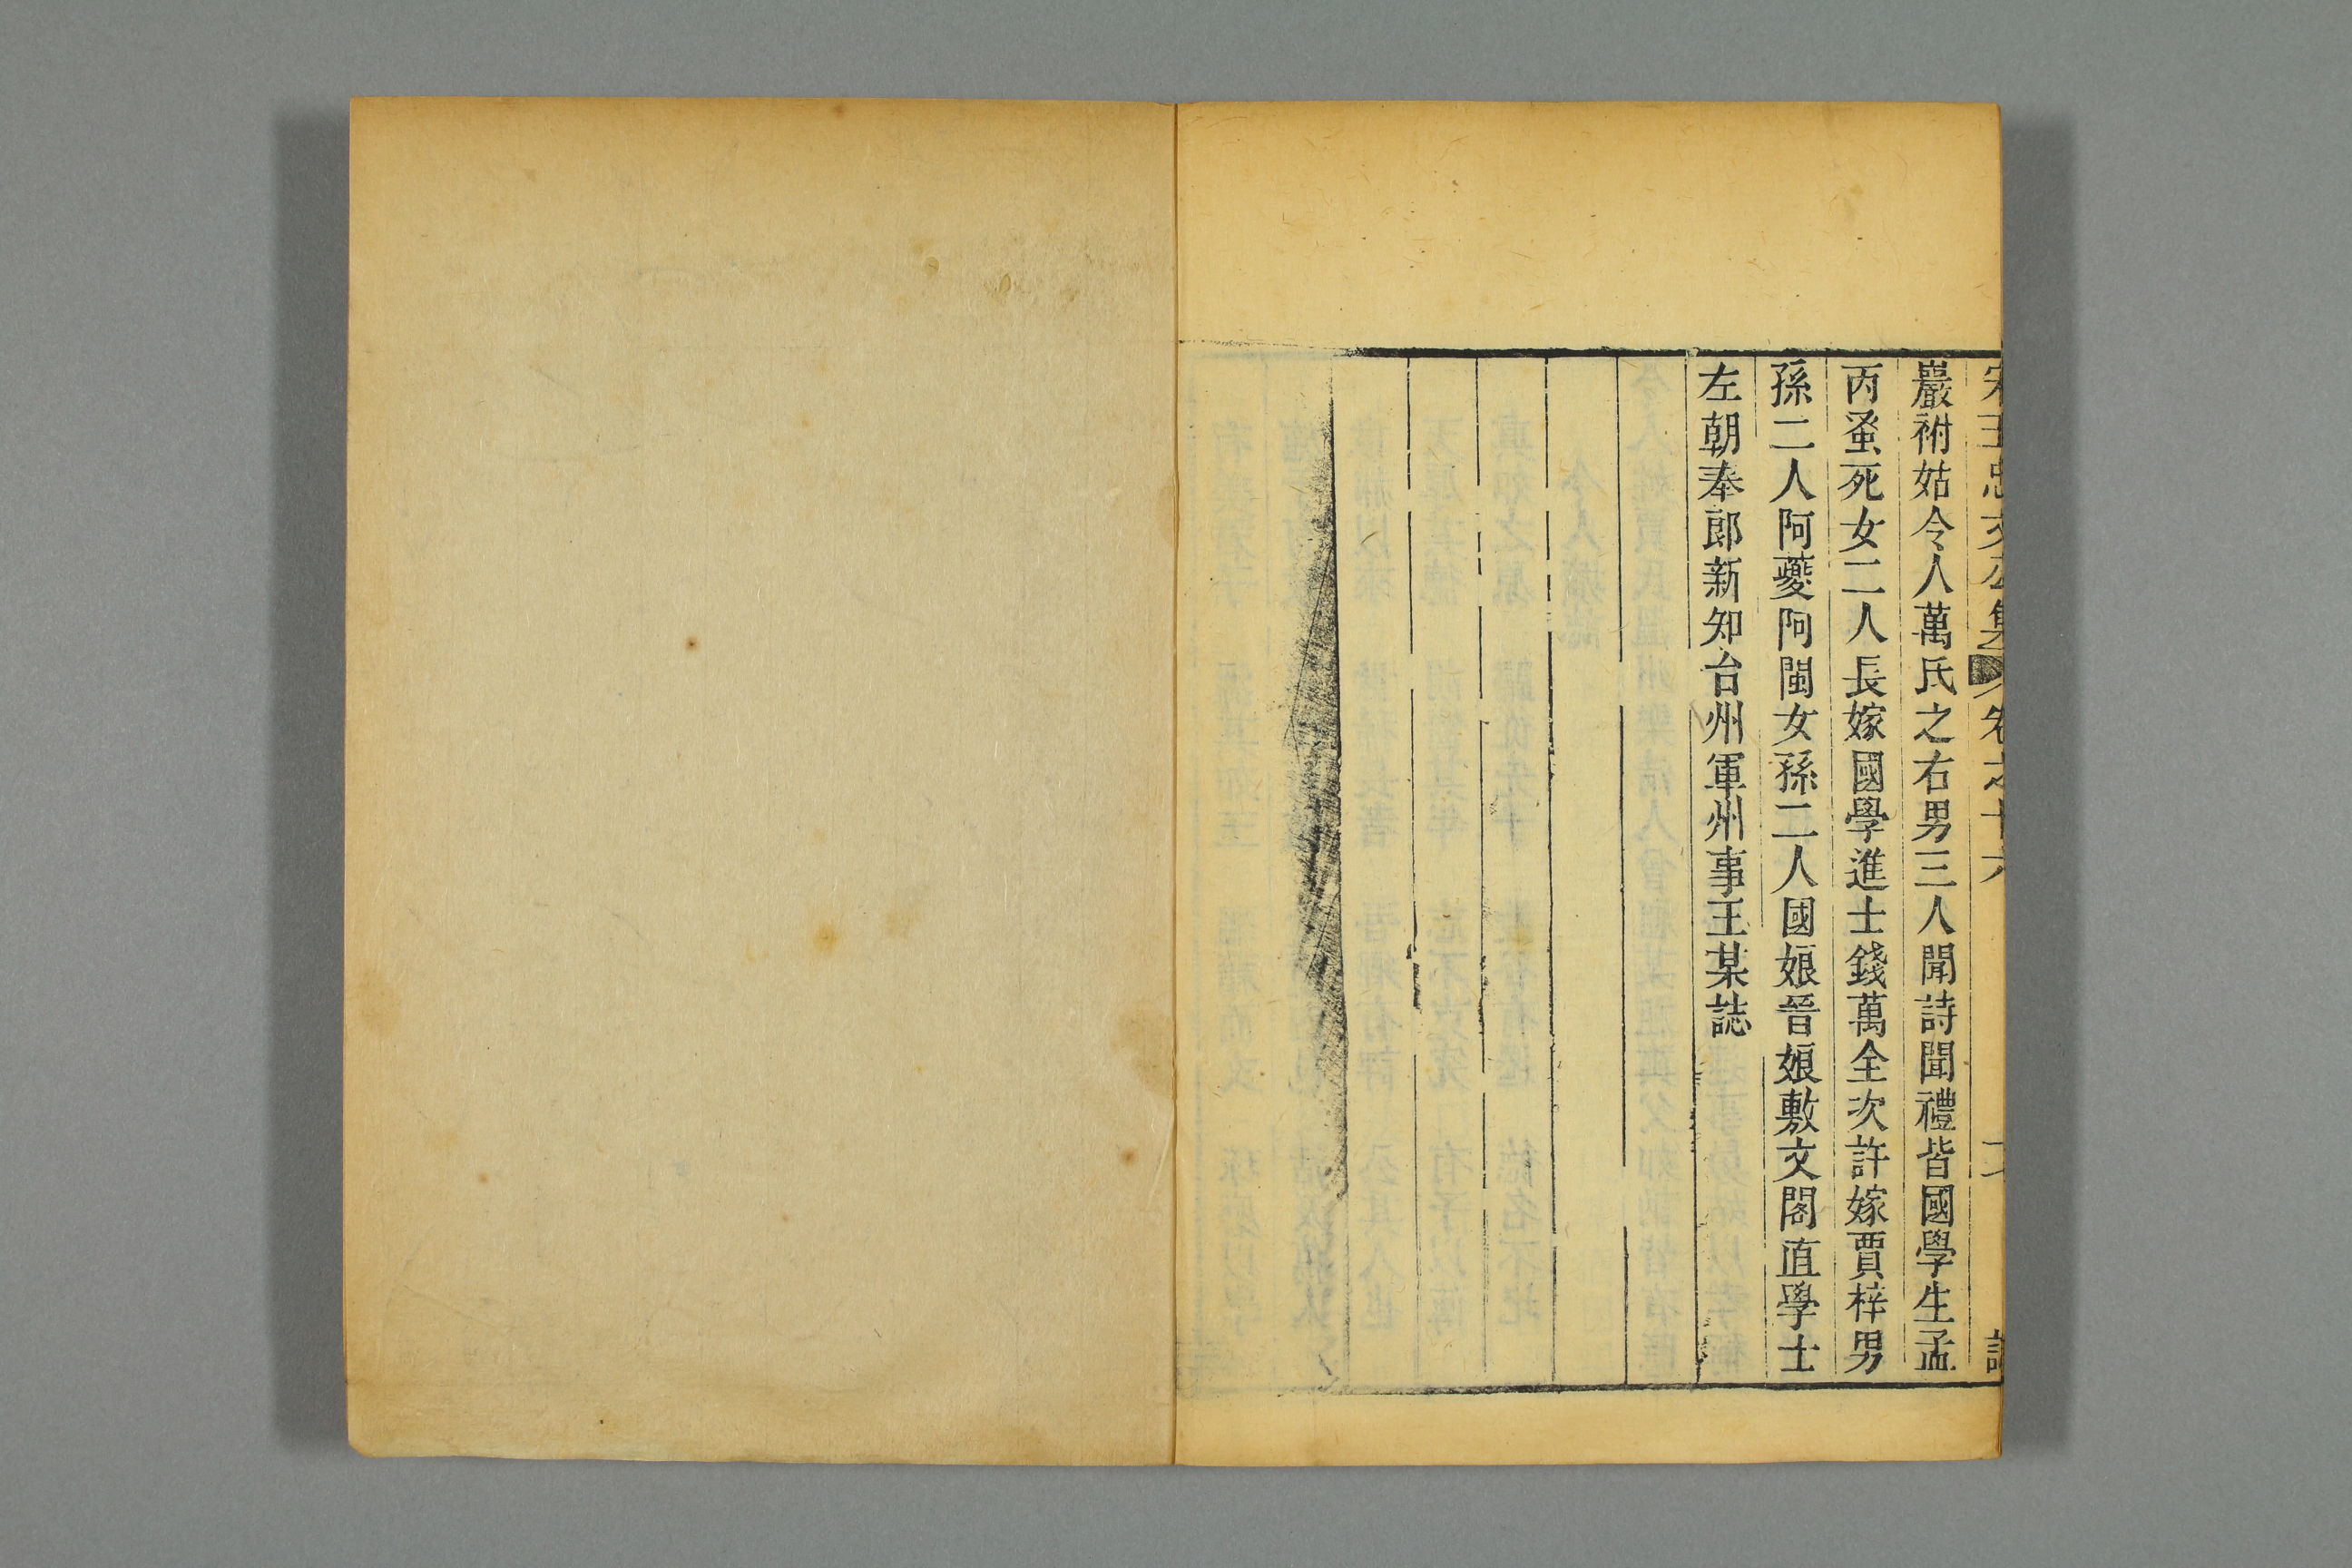 宋王忠文公集 卷之十六
巖祔姑令人萬氏之右男三人聞詩聞禮皆國學生孟
丙蚤死女二人長嫁國學進士錢萬全次許嫁賈梓男
孫二人阿夔阿閩女孫二人國娘晉娘敷文閣直學士
左朝奉郎新知台州軍州事王某誌